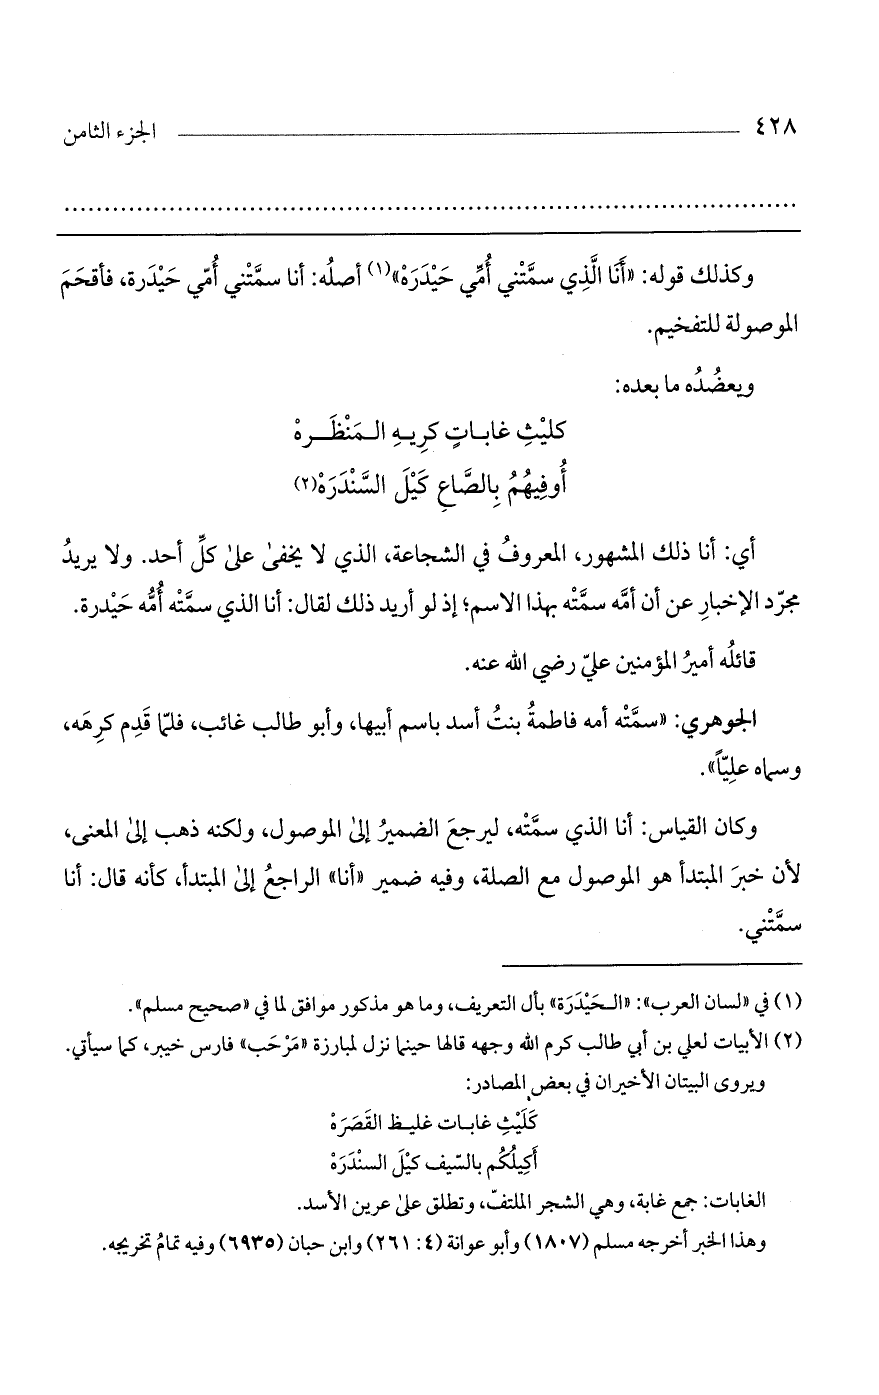 ٤٢٨ الجزء الثامن
وكذلك قوله: «أَنَا الَّذِي سمَّتْني أُمِّي حَيْدَرَهْ»(١) أصلُه: أنا سمَّتْني أُمّي حَيْدَرة، فأقحَمَ
الموصولة للتفخيم.
ويعضُدُه ما بعده:
كليْثِ غابـاتٍ كرِيـهِ الـمَنْظَــرهْ
أُوفِيهُمُ بِالصَّاعِ كَيْلَ السَّنْدَرَهْ(٢)
أي: أنا ذلك المشهور، المعروفُ في الشجاعة، الذي لا يخفىٰ علىٰ كلِّ أحد. ولا يريدُ
مجرّد الإخبارِ عن أن أمَّه سمَّتْه بهذا الاسم؛ إذ لو أريد ذلك لقال: أنا الذي سمَّتْه أُمُّه حَيْدرة.
قائلُه أميرُ المؤمنين عليّ رضي الله عنه.
الجوهري: «سمَّتْه أمه فاطمةُ بنتُ أسد باسم أبيها، وأبو طالب غائب، فلمّا قَدِم كرِهَه،
وسماه علِيّاً».
وكان القياس: أنا الذي سمَّتْه، ليرجعَ الضميرُ إلىٰ الموصول، ولكنه ذهب إلىٰ المعنى،
لأن خبرَ المبتدأ هو الموصول مع الصلة، وفيه ضمير «أنا» الراجعُ إلىٰ المبتدأ، كأنه قال: أنا
سمَّتْني.
(١) في «لسان العرب»: «الـحَيْدَرَة» بأل التعريف، وما هو مذكور موافق لما في «صحيح مسلم».
(٢) الأبيات لعلي بن أبي طالب كرم الله وجهه قالها حينما نزل لمبارزة «مَرْحَب» فارس خيبر، كما سيأتي.
ويروى البيتان الأخيران في بعض المصادر:
كَلَيْثِ غابـات غليـظ القَصَرَهْ
أَكِيلُكُم بالسّيف كيْلَ السنْدَرَهْ
الغابات: جمع غابة، وهي الشجر الملتفّ، وتطلق علىٰ عرين الأسد.
وهذا الخبر أخرجه مسلم (١٨٠٧) وأبو عوانة (٤: ٢٦١) وابن حبان (٦٩٣٥) وفيه تمامُ تخريجه.